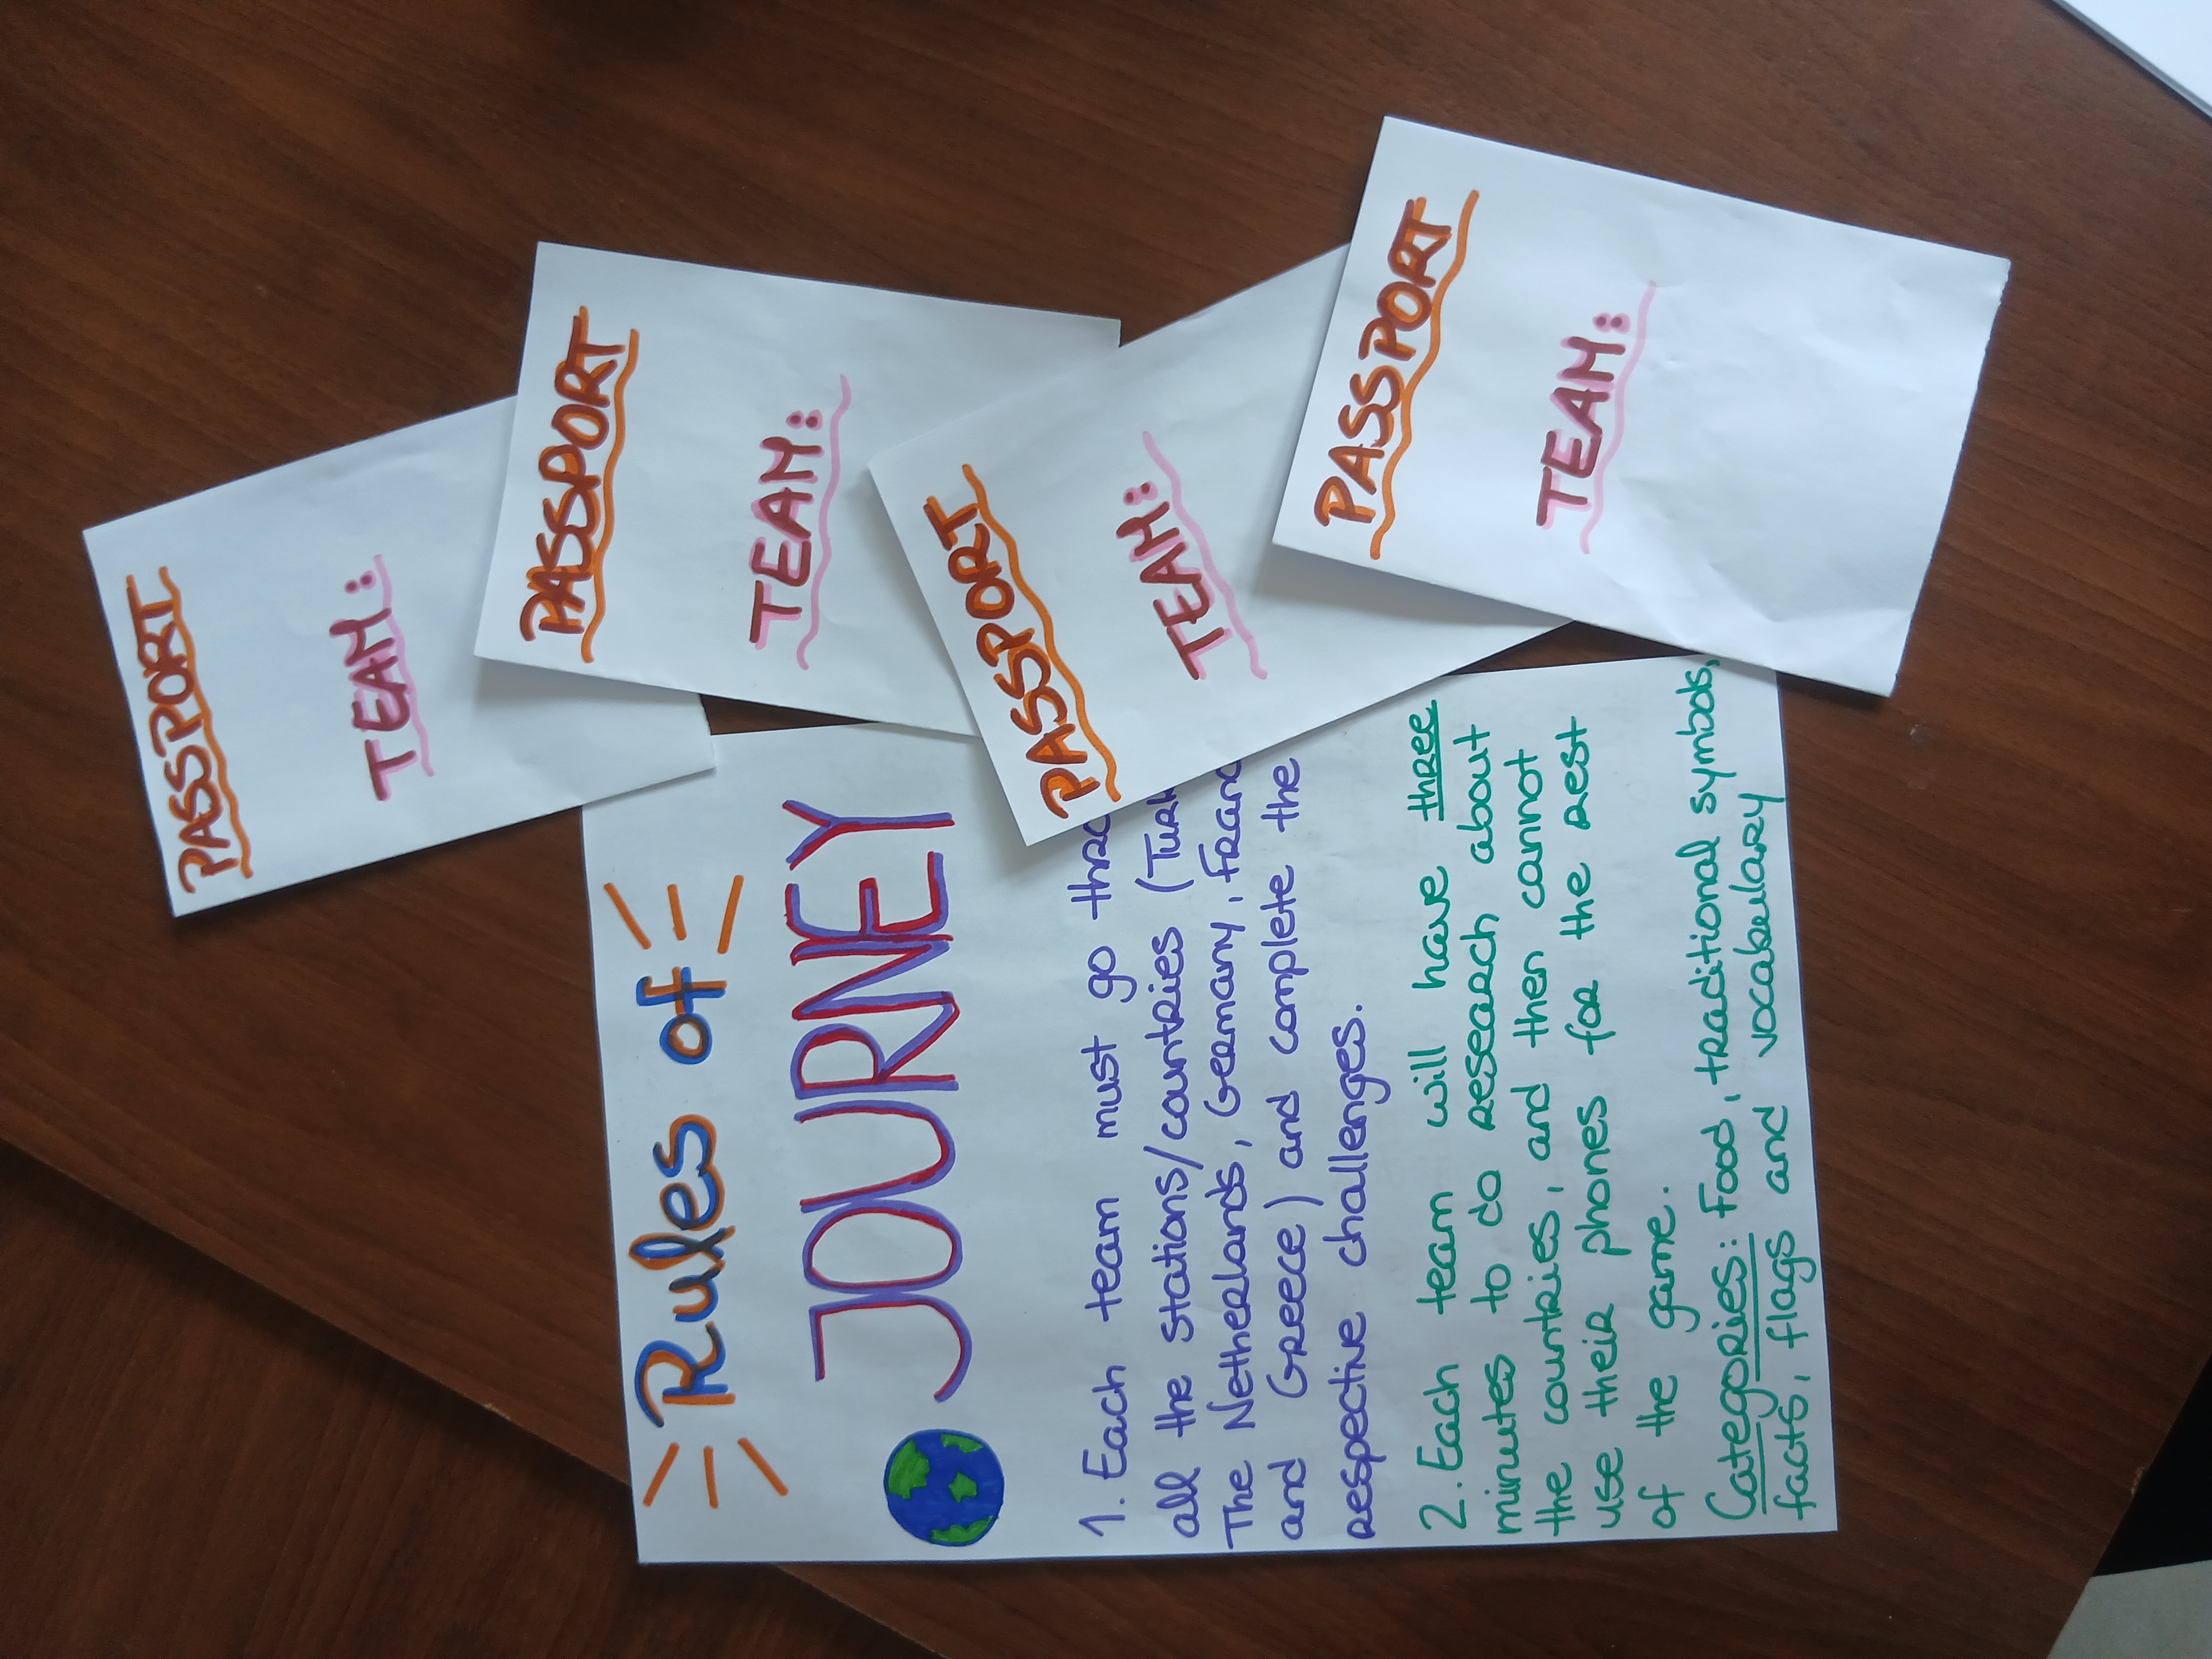 Rules of
JOURNEY
1. Each team must go
all the stations/countries
The Netherlands, Germany,
and Greece) and complete the
respective challenges.
2. Each team will have three
minutes to do research about
the countries, and then cannot
use their phones for the rest
of the game.
Categories: Food, traditional symbols,
facts, flags and vocabulary
PASSPORT
TEAM:
PASSPORT
TEAM:
PASSPORT
TEAM:
PASSPORT
TEAM: